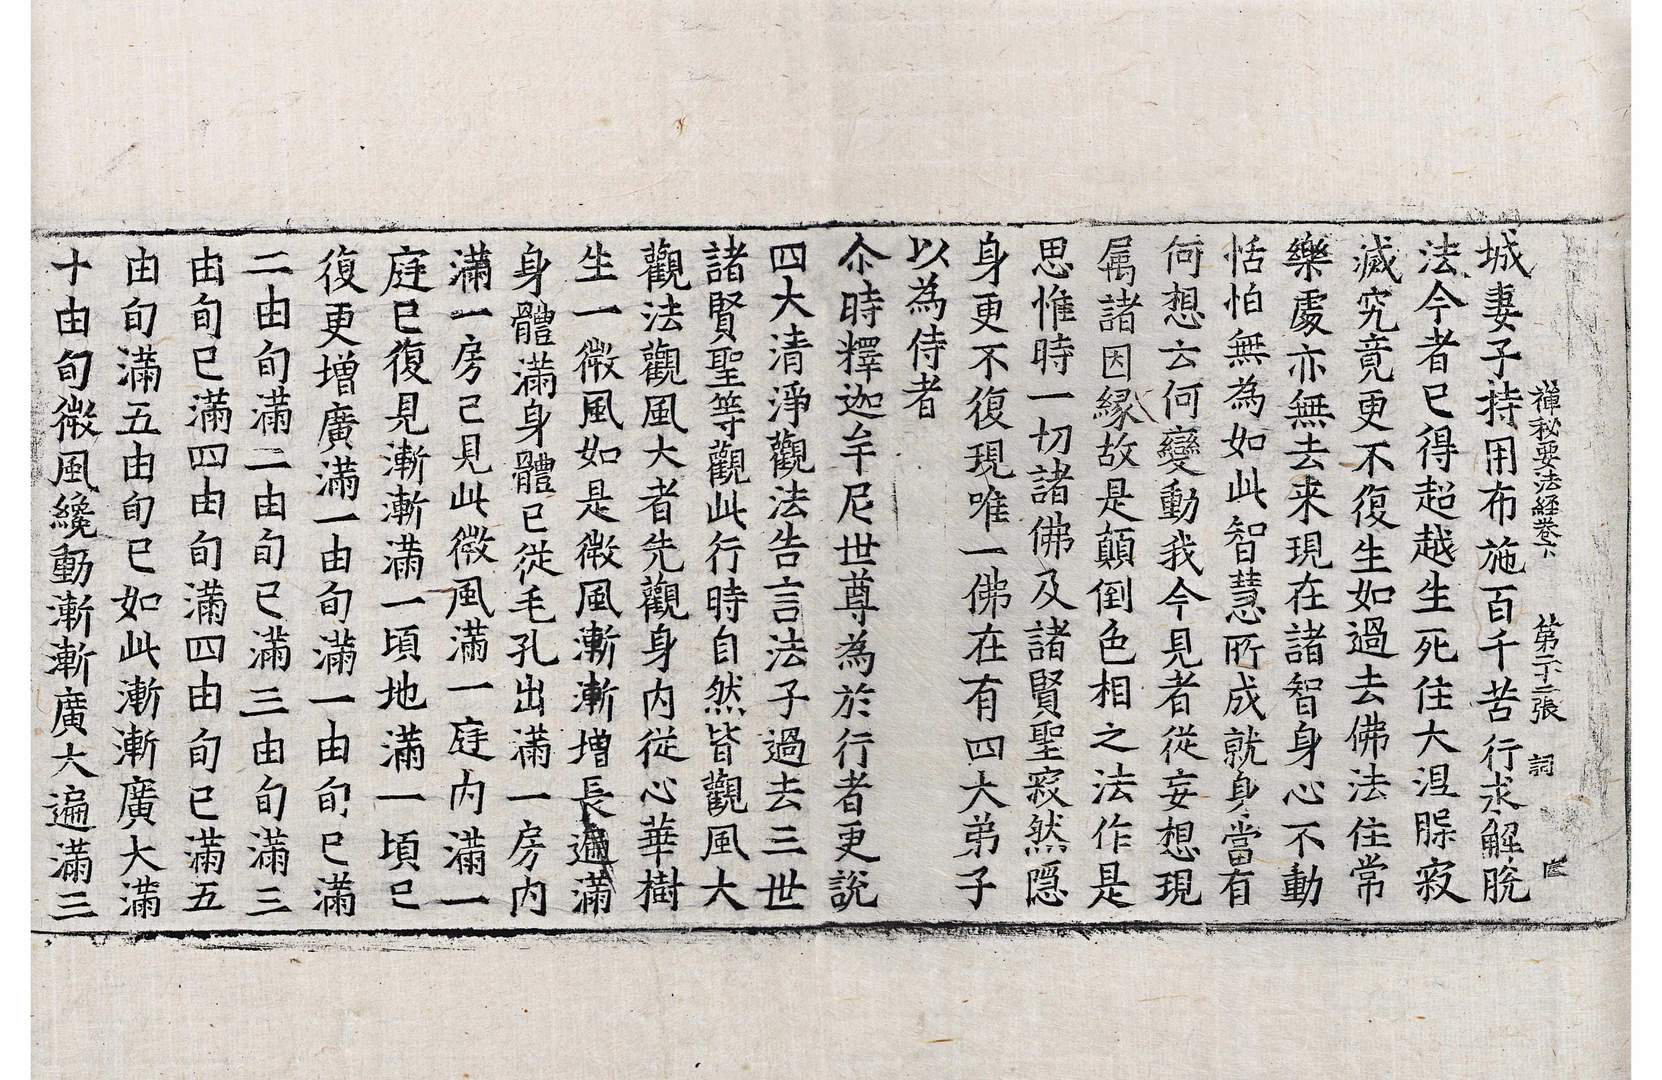 禪秘要法經卷下　第二十二張　詞
城妻子持用布施百千苦行求解脫
法今者已得超越生死住大涅槃寂
滅究竟更不復生如過去佛法住常
樂處亦無去来現在諸智身心不動
恬怕無為如此智慧所成就身當有
何想云何變動我今見者從妄想現
屬諸因緣故是顛倒色相之法作是
思惟時一切諸佛及諸賢聖寂然隱
身更不復現唯一佛在有四大弟子
以為侍者
尒時釋迦牟尼世尊為於行者更說
四大清淨觀法告言法子過去三世
諸賢聖等觀此行時自然皆觀風大
觀法觀風大者先觀身內從心華樹
生一微風如是微風漸漸增長遍滿
身體滿身體已從毛孔出滿一房內
滿一房已見此微風滿一庭內滿一
庭已復見漸漸滿一頃地滿一頃已
復更增廣滿一由旬滿一由旬已滿
二由旬滿二由旬已滿三由旬滿三
由旬已滿四由旬滿四由旬已滿五
由旬滿五由旬已如此漸漸廣大滿
十由旬微風纔動漸漸廣大遍滿三